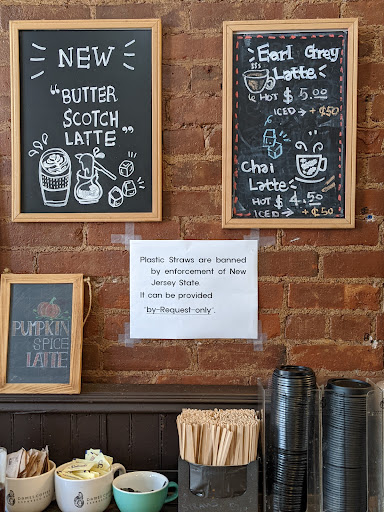 NEW
"BUTTER
SCOTCH
LATTE"
Earl Grey
Latte
HOT $ 5.00
ICED → + ¢50
Chai
Latte
HOT $ 4.50
ICED → + ¢50
Plastic Straws are banned
by enforcement of New
Jersey State.
It can be provided
"by-Request-only".
PUMPKIN
SPICE
LATTE